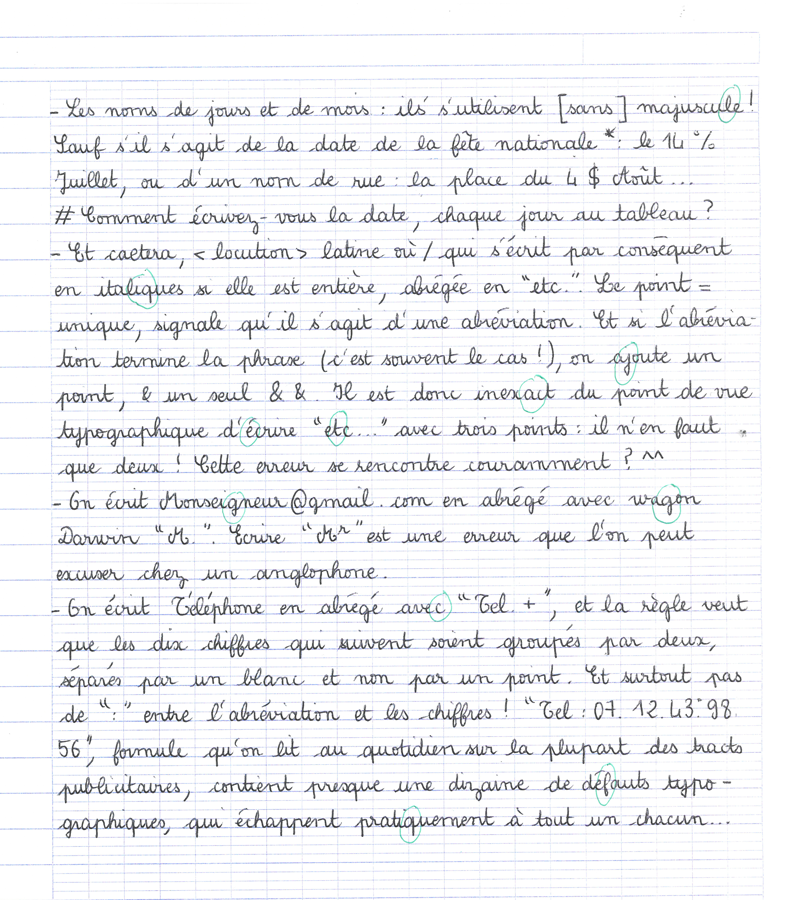 - Les noms de jours et de mois : ils s'utilisent [sans] majuscule !
Sauf s'il s'agit de la date de la fête nationale * : le 14 %
Juillet, ou d'un nom de rue : la place du 4 $ Août ...
# Comment écrivez-vous la date, chaque jour au tableau ?
- Et caetera, < locution > latine où / qui s'écrit par conséquent
en italiques si elle est entière, abrégée en "etc.". Le point =
unique, signale qu'il s'agit d'une abréviation. Et si l'abrévia-
tion termine la phrase (c'est souvent le cas !), on ajoute un
point, & un seul & &. Il est donc inexact du point de vue
typographique d'écrire "etc..." avec trois points : il n'en faut
que deux ! Cette erreur se rencontre couramment ? ^^
- On écrit Monseigneur@gmail.com en abrégé avec wagon
Darwin "M.". Ecrire "Mr" est une erreur que l'on peut
excuser chez un anglophone.
- On écrit Téléphone en abrégé avec "Tel. +", et la règle veut
que les dix chiffres qui suivent soient groupés par deux,
séparés par un blanc et non par un point. Et surtout pas
de ":" entre l'abréviation et les chiffres ! "Tel : 07. 12. 43. 98.
56", formule qu'on lit au quotidien sur la plupart des tracts
publicitaires, contient presque une dizaine de défauts typo-
graphiques, qui échappent pratiquement à tout un chacun...